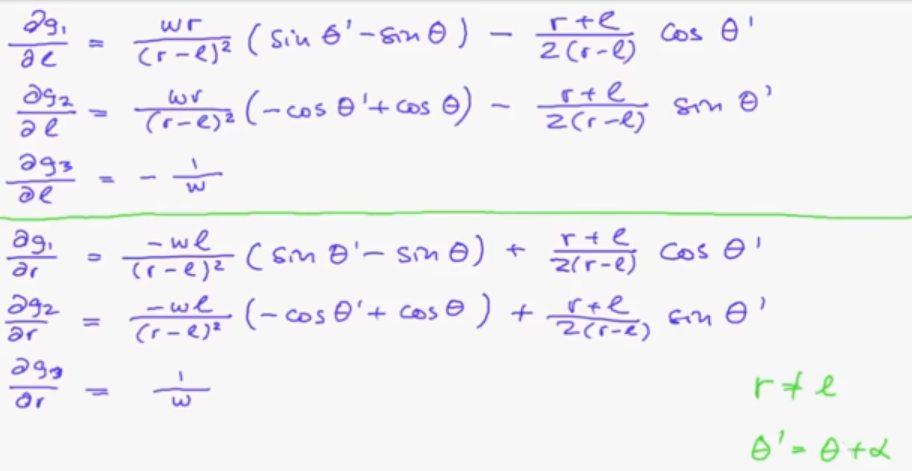 ∂g₁/∂l = wr/(r-l)² (sin θ' - sin θ) - r+l/2(r-l) cos θ'
∂g₂/∂l = wr/(r-l)² (-cos θ' + cos θ) - r+l/2(r-l) sin θ'
∂g₃/∂l = - 1/w
∂g₁/∂r = -wl/(r-l)² (sin θ' - sin θ) + r+l/2(r-l) cos θ'
∂g₂/∂r = -wl/(r-l)² (-cos θ' + cos θ) + r+l/2(r-l) sin θ'
∂g₃/∂r = 1/w
r ≠ l
θ' = θ + α